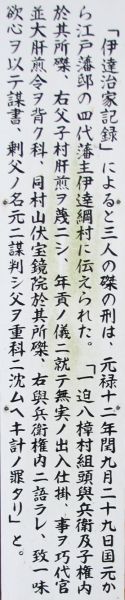 「伊達治家記録」によると三人の磔の刑は、元禄十二年閏九月二十九日国元か
ら江戸藩邸の四代藩主伊達綱村に伝えられた。「一迫八樟村組頭與兵衛及子権内
於其所磔、右父子村肝煎ヲ蔑ニシ、年貢ノ儀ニ就テ無実ノ出入仕掛、事ヲ巧代官
並大肝煎令ヲ背ク科、同村山伏宝鏡院於其所磔、右與兵衛権内ニ語ラレ、致一味
欲心ヲ以テ謀書、剰父ノ名元ニ謀判シ父ヲ重科ニ沈ムヘキ計ノ罪タリ」と。